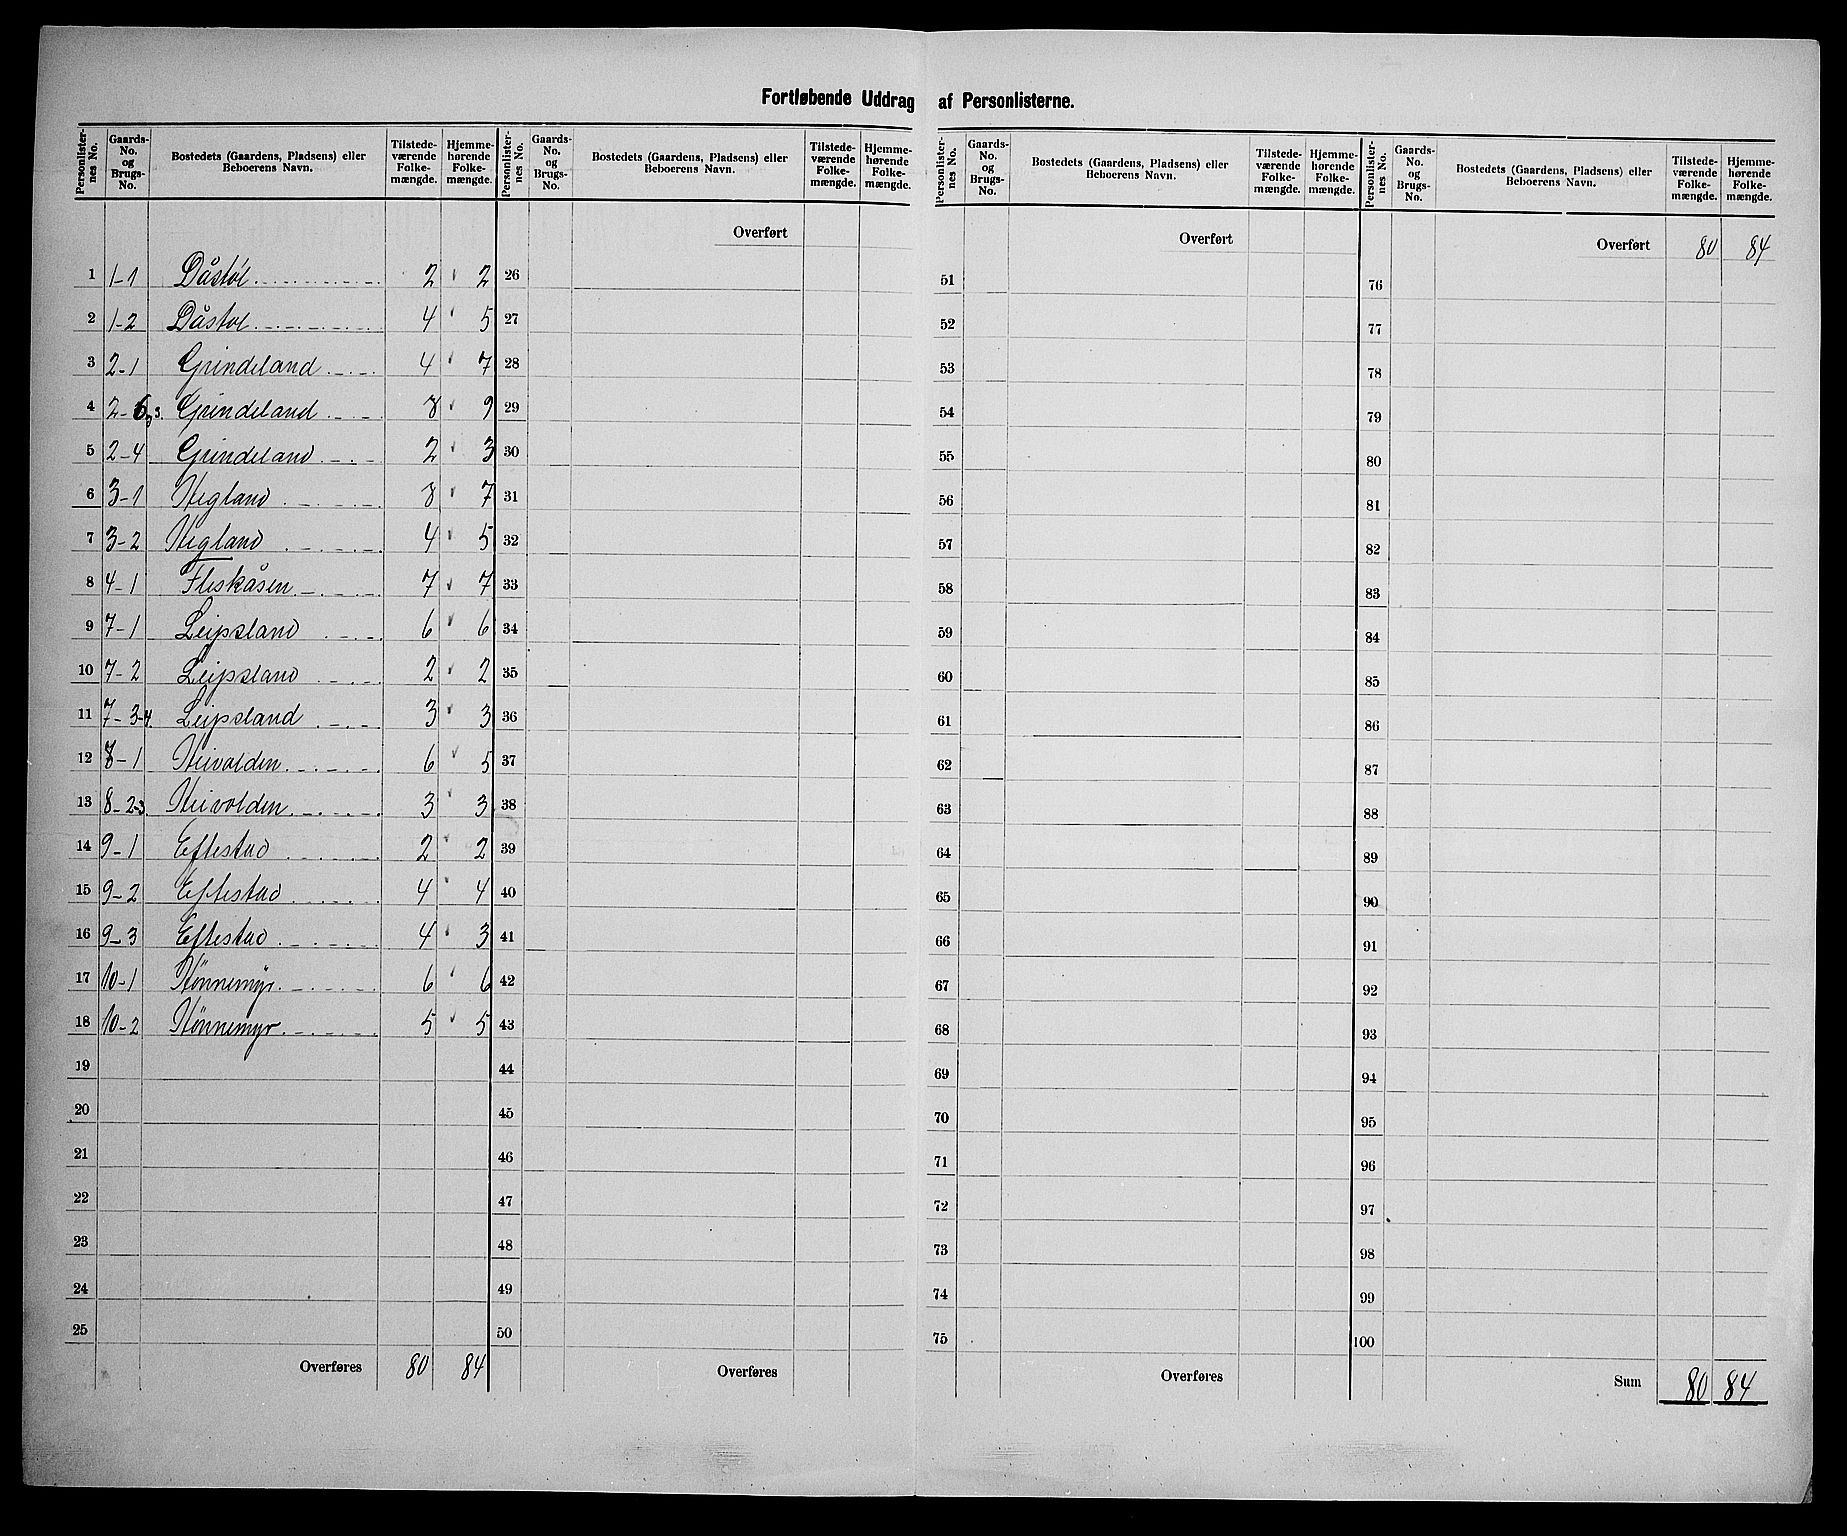 Fortløbende Uddrag af Personlisterne.
Personlister-nes No. Gaards-No. og Brugs-No. Bostedets (Gaardens, Pladsens) eller Beboerens Navn. Tilstede-værende Folke-mængde. Hjemme-hørende Folke-mængde.
1 1-1 Dåstøl 2 2
2 1-2 Dåstøl 4 5
3 2-1 Grindeland 4 7
4 2-6 Grindeland 8 9
5 2-4 Grindeland 2 3
6 3-1 Hegland 8 7
7 3-2 Hegland 4 5
8 4-1 Fleskåsen 7 7
9 7-1 Leipsland 6 6
10 7-2 Leipsland 2 2
11 7-3-4. Leipsland 3 3
12 8-1 Heivolden 6 5
13 8-2-3. Heivolden 3 3
14 9-1 Eftestad 2 2
15 9-2 Eftestad 4 4
16 9-3 Eftestad 4 3
17 10-1 Hönnemyr 6 6
18 10-2 Hönnemyr 5 5
19
20
21
22
23
24
25
Overføres 80 84
Personlister-nes No. Gaards-No. og Brugs-No. Bostedets (Gaardens, Pladsens) eller Beboerens Navn. Tilstede-værende Folke-mængde. Hjemme-hørende Folke-mængde.
Overført
26
27
28
29
30
31
32
33
34
35
36
37
38
39
40
41
42
43
44
45
46
47
48
49
50
Overføres
Personlister-nes No. Gaards-No. og Brugs-No. Bostedets (Gaardens, Pladsens) eller Beboerens Navn. Tilstede-værende Folke-mængde. Hjemme-hørende Folke-mængde.
Overført
51
52
53
54
55
56
57
58
59
60
61
62
63
64
65
66
67
68
69
70
71
72
73
74
75
Overføres
Personlister-nes No. Gaards-No. og Brugs-No. Bostedets (Gaardens, Pladsens) eller Beboerens Navn. Tilstede-værende Folke-mængde. Hjemme-hørende Folke-mængde.
Overført 80 84
76
77
78
79
80
81
82
83
84
85
86
87
88
89
90
91
92
93
94
95
96
97
98
99
100
Sum 80 84